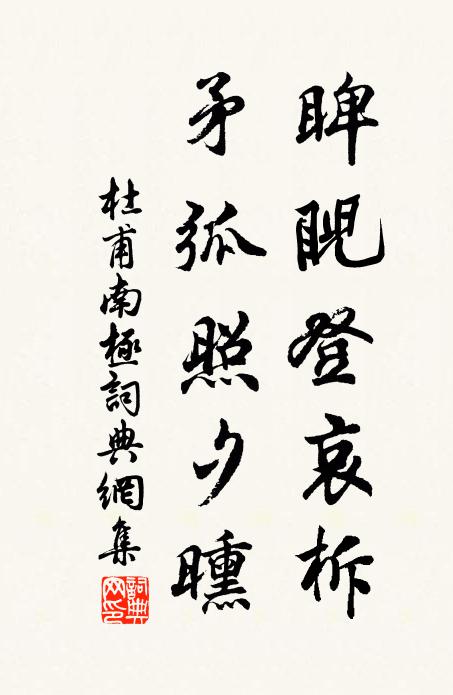 睥睨登哀柝
矛弧照夕曛
杜甫南極詞典網集
詞典网印